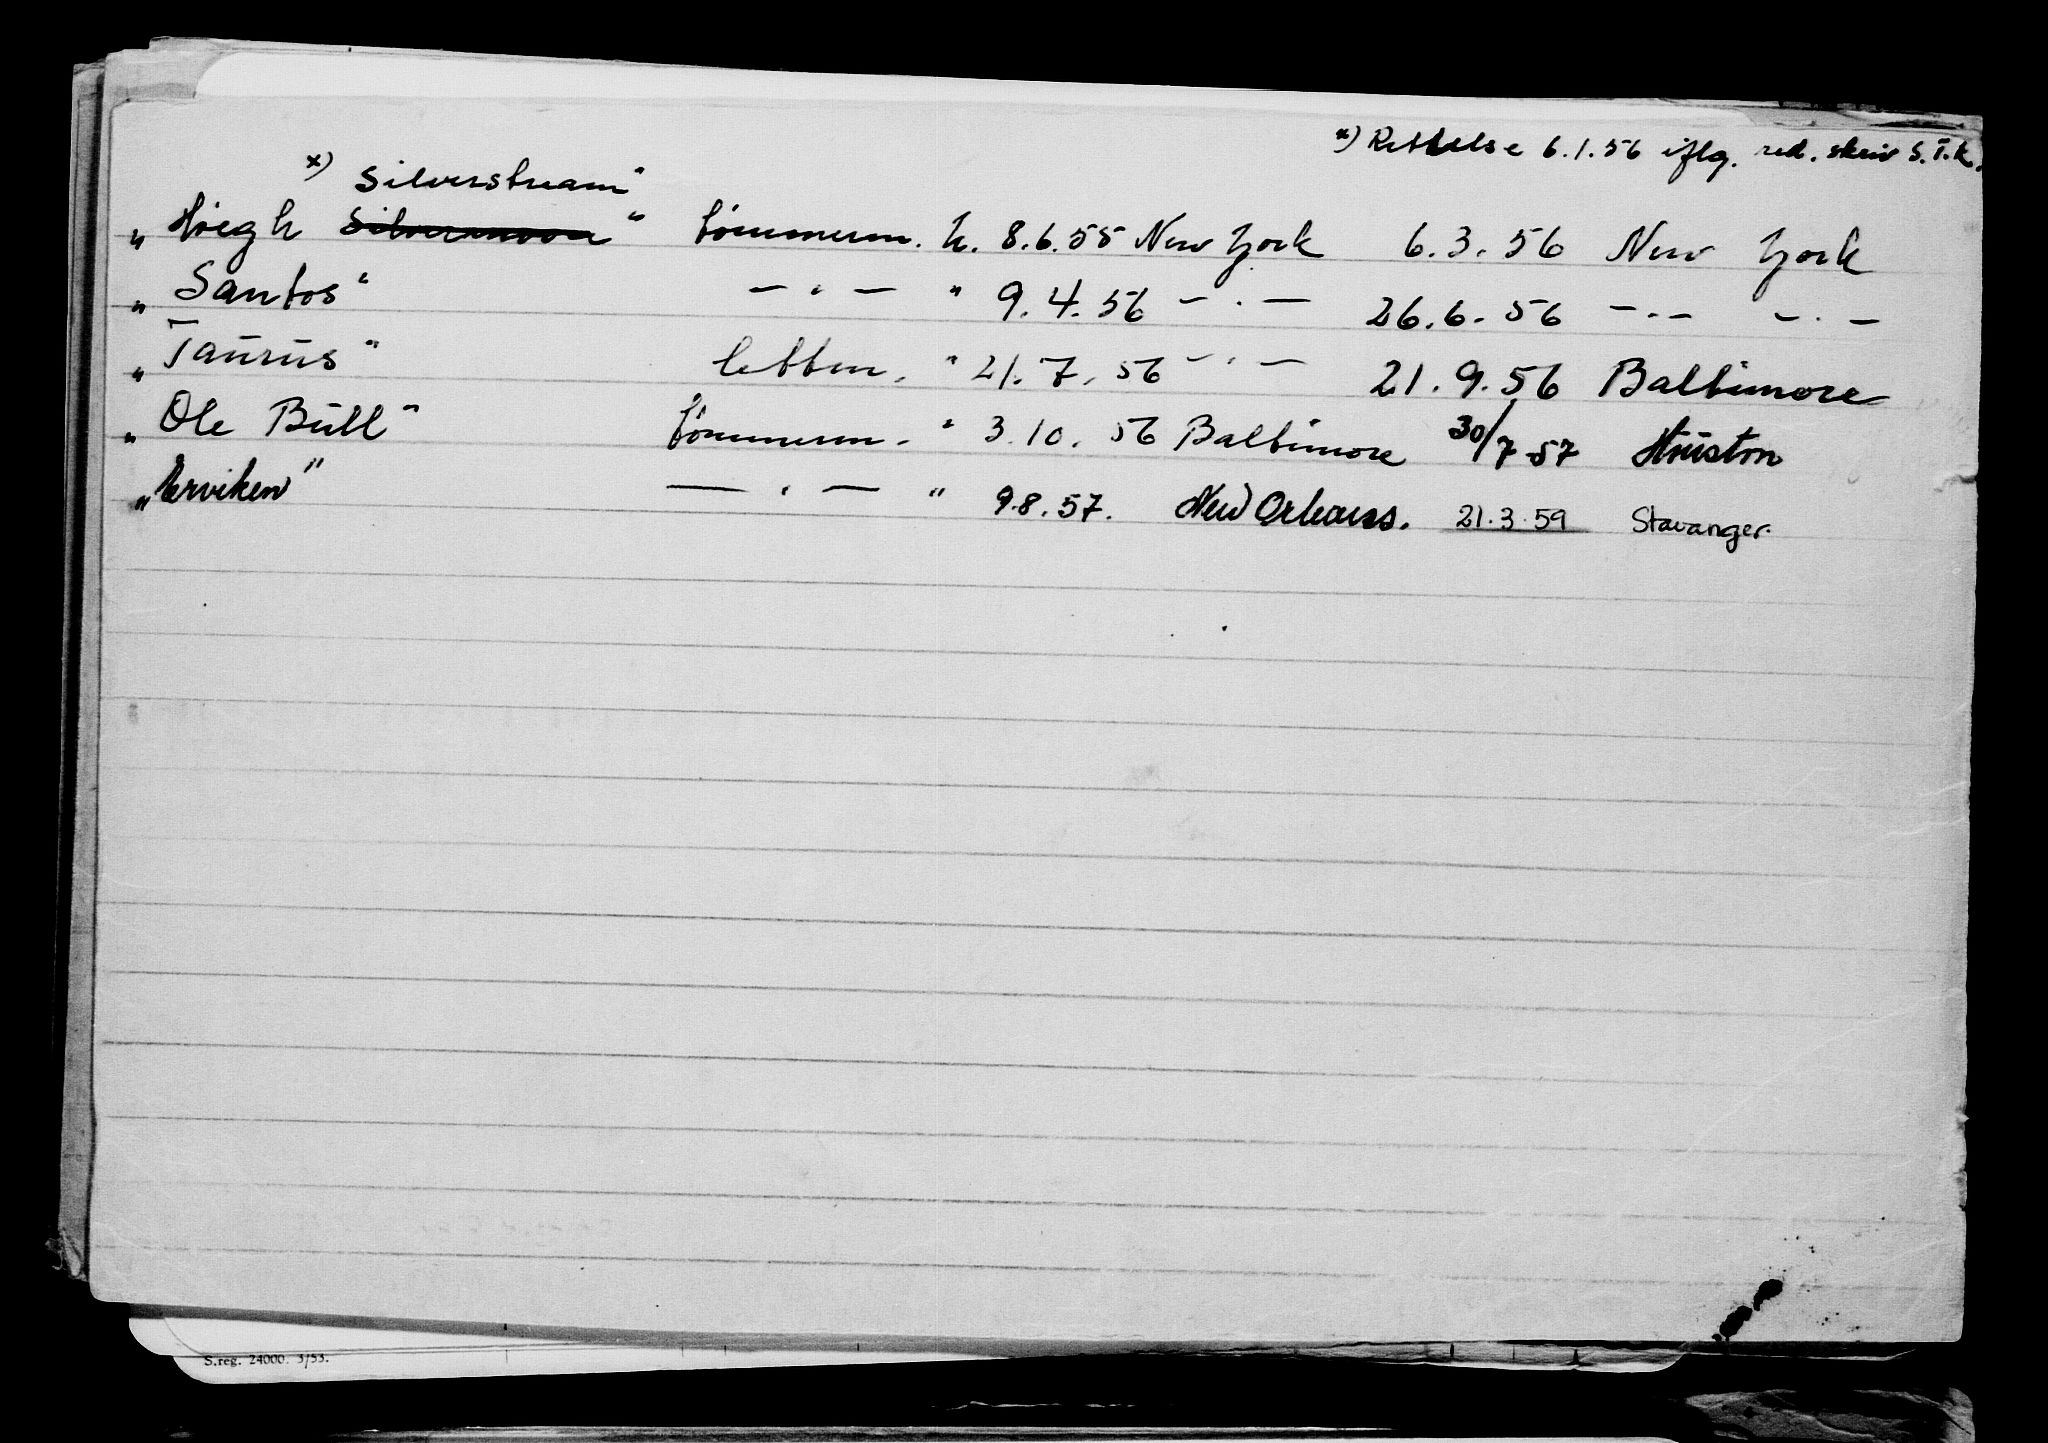 x) Rettelse 6.1.56 iflg. red. skriv S.T.K.
x) Silverstream"
„Höegh Silvermoon" tømmerm. h. 8.6.55 New York 6.3.56 New York
„Santos" — " — " 9.4.56 — " — 26.6.56 — " — — " —
„Taurus" lettm. " 21.7.56 — " — 21.9.56 Baltimore
„Ole Bull" tømmerm. " 3.10.56 Baltimore 30/7-57 Houston
„Erviken" — " — " 9.8.57. New Orleans. 21.3.59 Stavanger.
S.reg. 24000. 3/53.